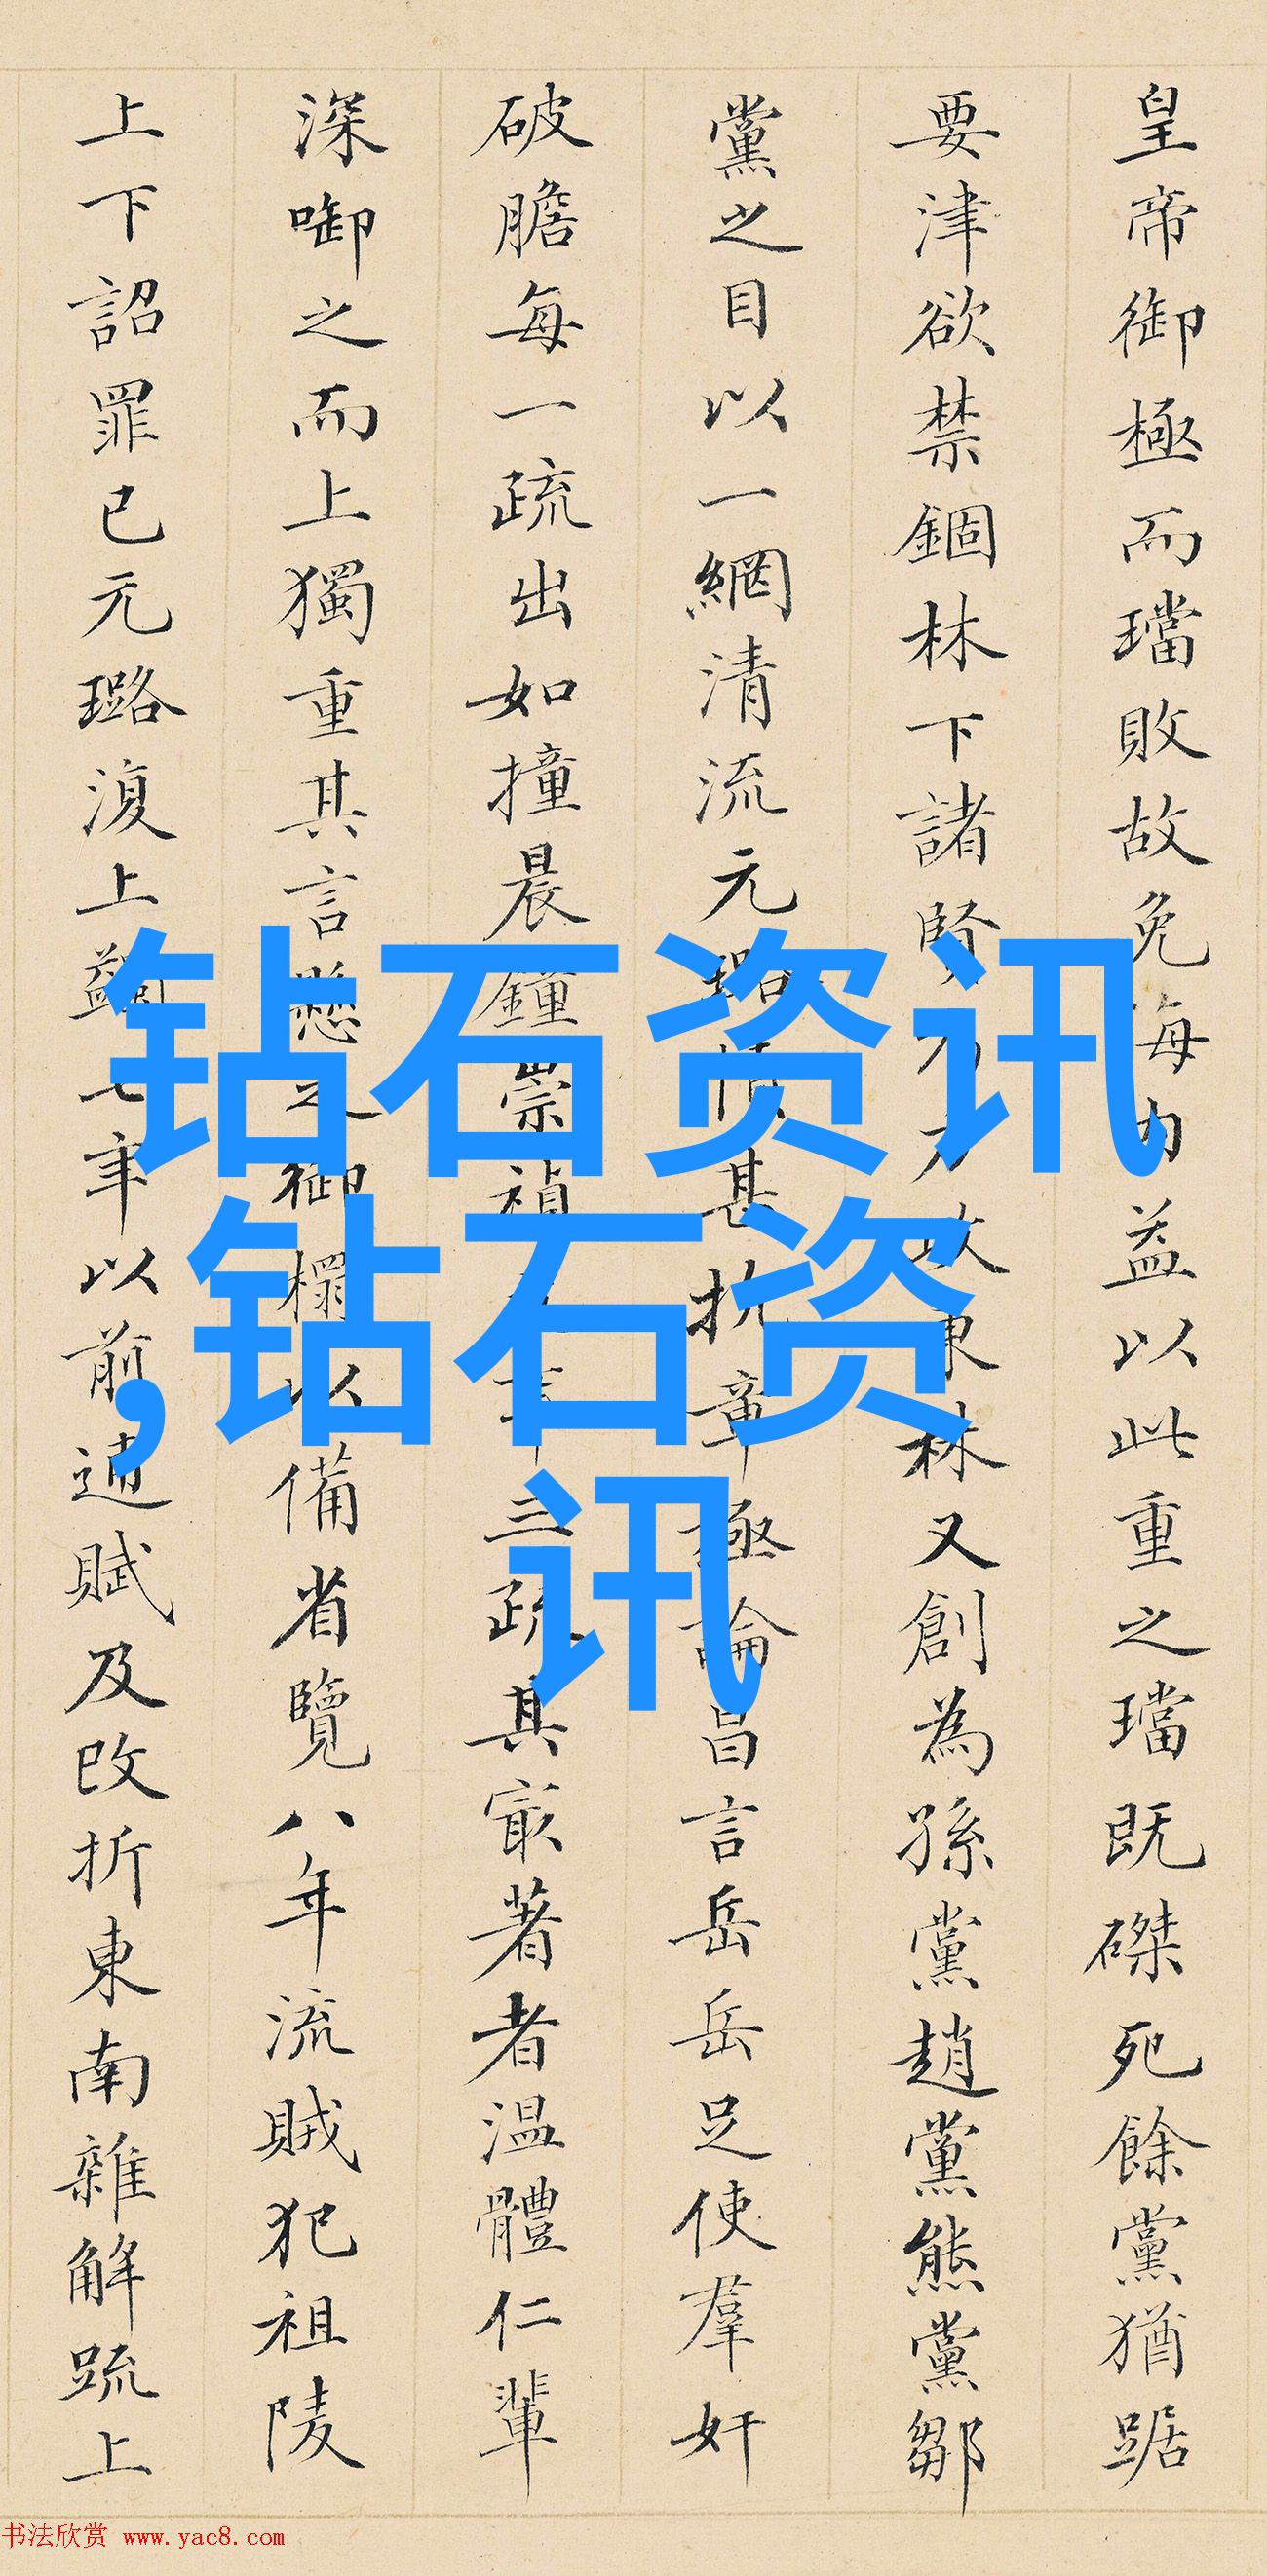 皇帝御極而璫敗故免誨力益以此重之璫既磔死餘黨猶踞
要津欲禁錮林下諸賢 東林又創為孫黨趙黨熊黨鄒
黨之目以一網清流元璐 甚抗章極論昌言岳岳足使羣奸
破膽每一疏出如撞晨鐘崇禎 三疏其㝡著者溫體仁輩
深啣之而上獨重其言懸之御榻以備省覽八年流賊犯祖陵
上下詔罪已元璐復上蠲七年以前逋賦及改折東南雜解䟽上
钻石资讯
,钻石资
讯
书法欣赏 www.yac8.com